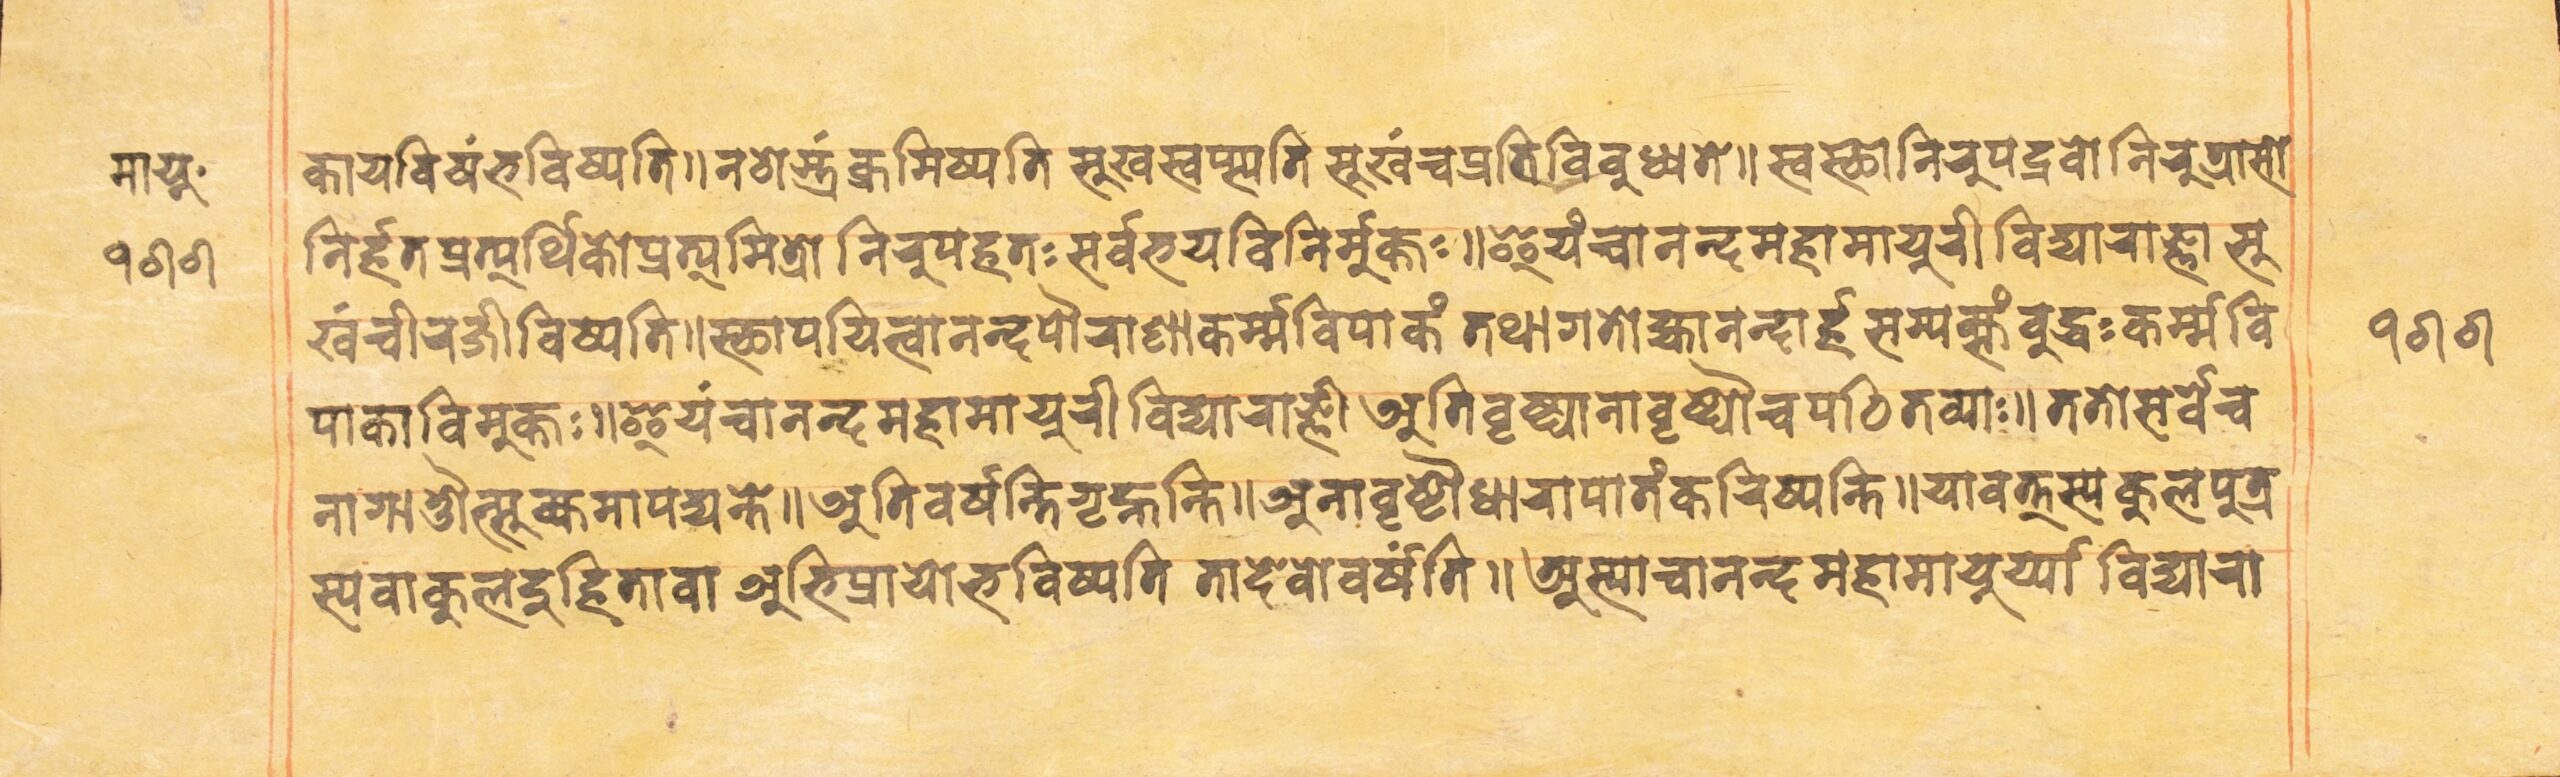 मायूः
कायविषंभविष्यति॥नशेस्त्रंक्रमिष्यति सुखस्वप्स्यति सुखंचप्रतिविबुध्यते॥स्वस्थोनिरुपद्रवोनिरुत्रासो
१७७
निर्हतप्रत्यर्थिकोप्रत्यमित्रो निरुपहतःसर्वभयविनिर्मुक्तः॥इयंचानन्दमहामायुरीविद्याराज्ञा सु
खंचीरजीविष्यति॥स्थापयित्वानन्दपौराणकर्म्मविपाकं तथागतोह्यानन्दार्ह सम्यक्संबुद्धःकर्म्मवि
१७७
पाकाविमुक्तः॥इयंचानन्दमहामायुरीविद्याराज्ञी अतिवृष्ट्यानावृष्ट्यौचपठितव्याः॥ततोसर्वेच
नागाऔत्सुक्यमापद्यन्ते॥अतिवर्षन्तिगृह्नन्ति॥अनावृष्टौधारापातंकरिष्यन्ति॥यावत्तस्यकुलपुत्र
स्यवाकुलदुहितावा अभिप्रायोभविष्यति तादेवोवर्षंति॥अस्याचानन्दमहामायुर्य्या विद्यारा